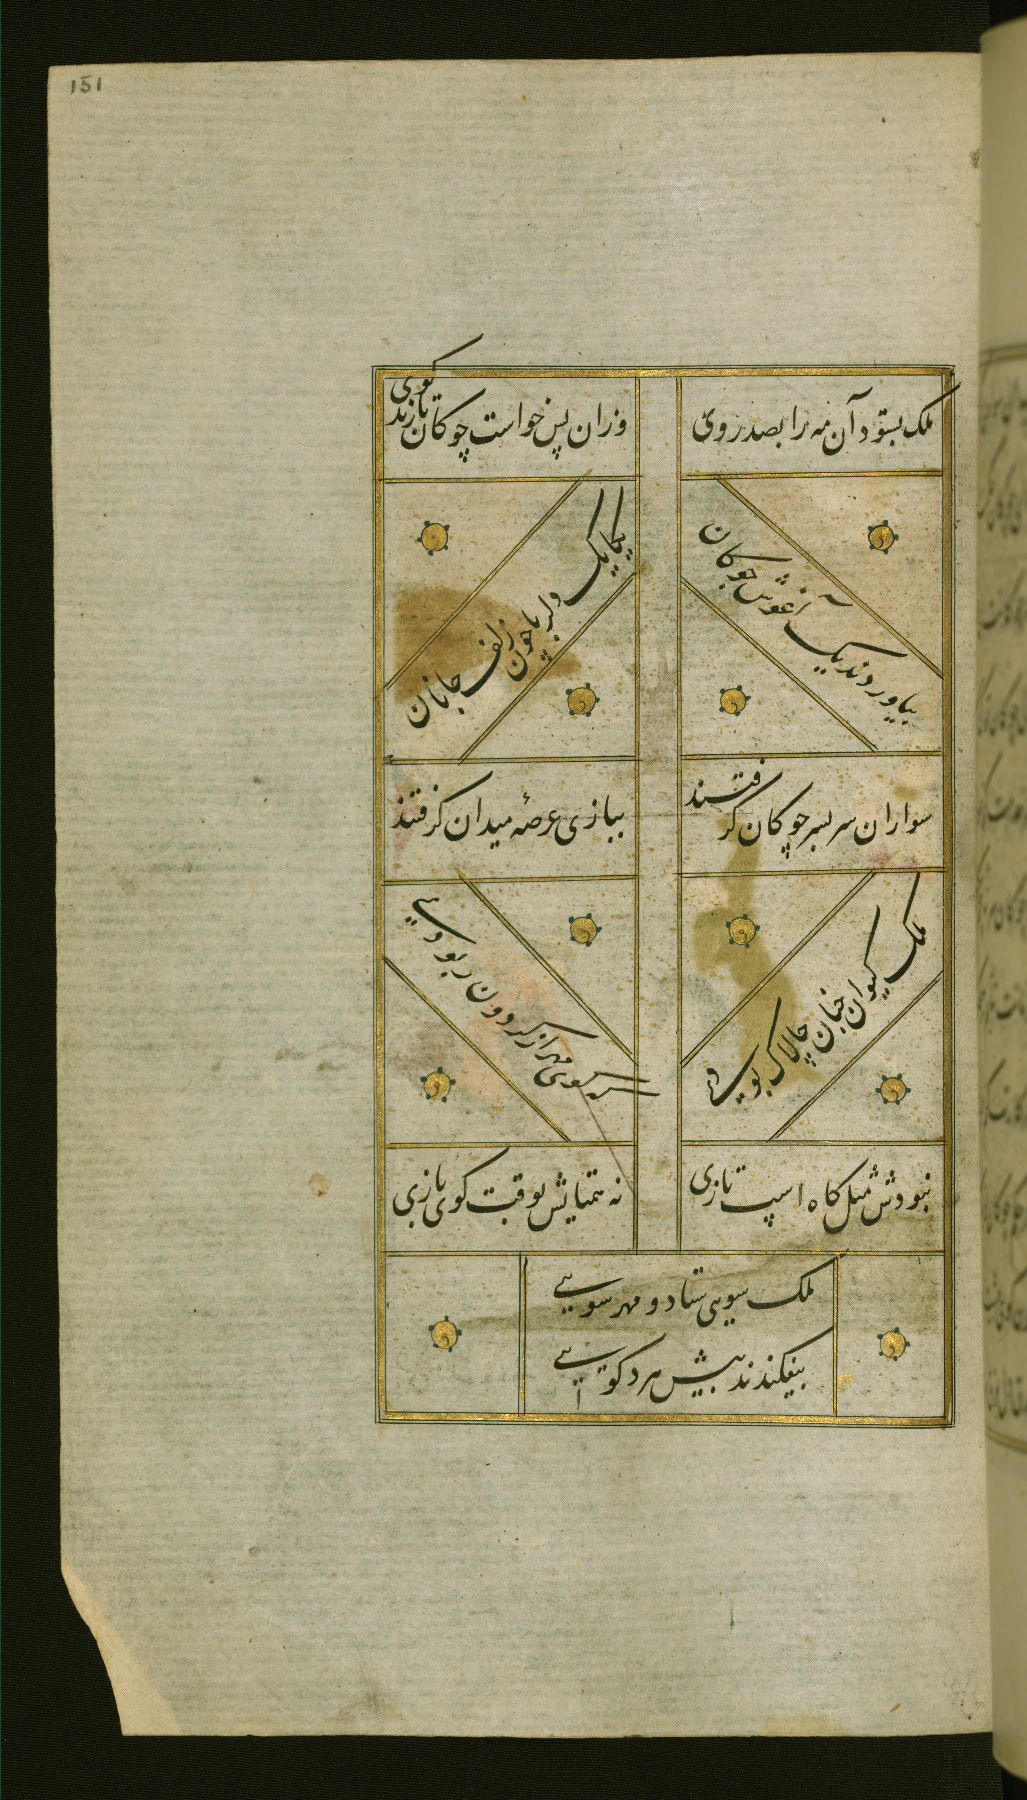 151
ملک بستود آن مه را بصد روی
وزان پس خواست چوکان تا زند کوی
بیاوردند یک آغوش چوکان
یکایک دلربا چون زلف جانان
سواران سر بسر چوکان کرفتند
ببازی عرصهٔ میدان کرفتند
ملک کیوان چنان چالاک بودی
کوی مهر از کردون ربودی
نبودش مثل کاه اسپ تازی
نه همتایش بوقت کوی بازی
ملک سویی ستاد و مهر سویی
بیفکندند پیش هر دو کویی